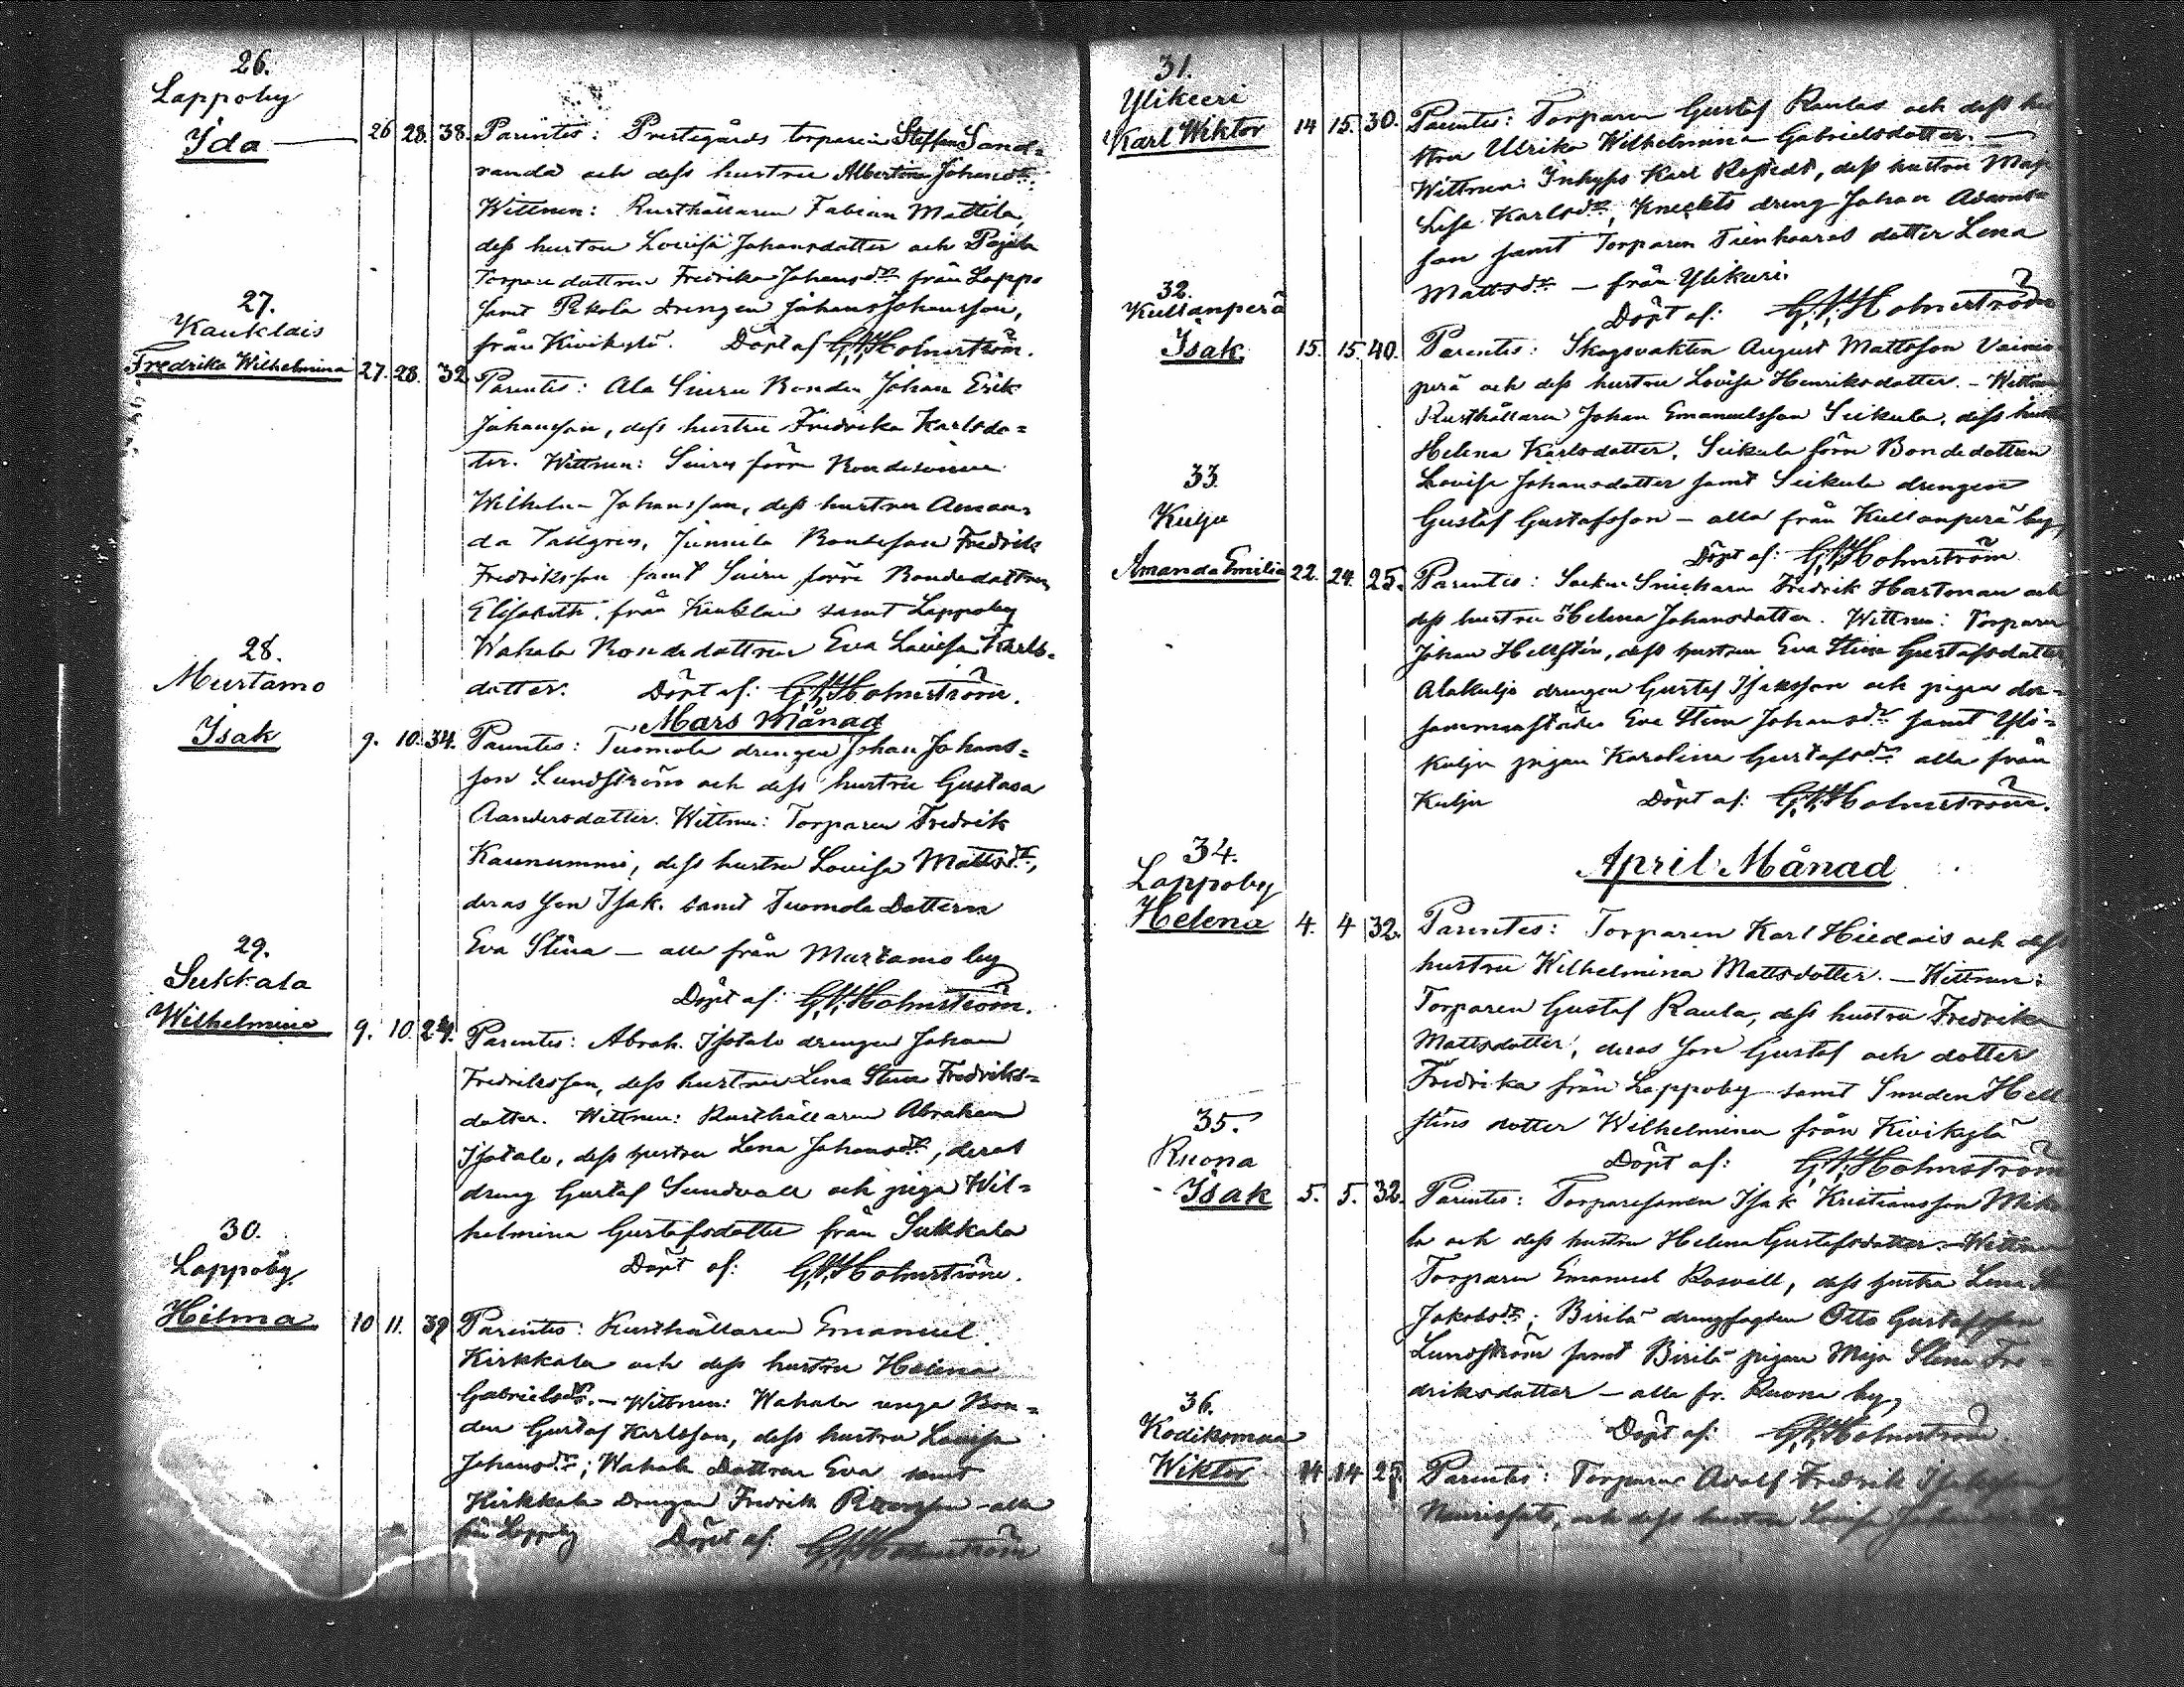 26.
Lappoby
Ida — 26 28. 38. Parentes: Prestegårds torparen Steffan Sand=
randa och dess hustru Albertina Johansdr.
Wittnen: Rusthållaren Fabian Mattila,
dess hustru Lovisa Johansdotter och Pajula
Torpare dottren Fredrika Johansdr från Lappo
samt Pekola drengen Johan Johansson,
från Kivikylä. Döpt af G.A. Holmström.
27.
Kauklais
Fredrika Wilhelmina 27. 28. 32. Parentes: Ala Siuru Bonden Johan Erik
Johansson, dess hustru Fredrika Karlsdo=
ter. Wittnen: Siuru förre Bondesonen
Wilhelm Johansson, dess hustru Aman=
da Tallgren, Junnila Bondeson Fredrik
Fredriksson samt Siuru förre Bondedottren
Elisabeth, från Kauklais samt Lappoby
Wahala Bondedottren Eva Lovisa Karls=
dotter. Döpt af: G.A. Holmström.
Mars Månad
28.
Murtamo
Isak 9. 10. 34. Parentes: Tuomola drengen Johan Johans=
son Lundström och dess hustru Gustava
Aandersdotter. Wittnen: Torparen Fredrik
Kaunummi, dess hustru Lovisa Mattsdr,
deras son Isak. samt Tuomola Dottern
Eva Stina — alla från Murtamo by
Döpt af: G.A. Holmström.
29.
Sukkala
Wilhelmina 9. 10. 24. Parentes: Abrah. Isotalo drengen Johan
Fredriksson, dess hustru Lena Stina Fredriks=
dotter. Wittnen: Rusthållaren Abraham
Isotalo, dess hustru Lena Johansdr, deras
dreng Gustaf Sundvall och piga Wil=
helmina Gustafsdotter från Sukkala
Döpt af: G.A. Holmström.
30.
Lappoby
Hilma 10 11. 39 Parentes: Rusthållaren Emanuel
Kirkkala och dess hustru Helena
Gabrielsdr. — Wittnen: Wahala unga Bon=
den Gustaf Karlsson, dess hustru Lovisa
Johansdr; Wahala Dottren Eva samt
Kirkkala Drengen Fredrik — alla
från Lappoby Döpt af: G.A. Holmström
31.
Ylikeeri
Karl Wiktor 14 15. 30. Parentes: Torparen Gustaf Raulas och dess hu
stru Ulrika Wilhelmina Gabrielsdotter. —
Wittnen: Inhyss Karl Regstedt, dess hustru Maja
Lisa Karlsdr, Knechts dreng Johan Adamos=
son samt Torparen Tienhaaras dotter Lena
Mattsdr — från Ylikeeri.
Döpt af: G.A. Holmström
32.
Kullanperä
Isak 15. 15. 40. Parentes: Skogsvakten August Mattsson Vainio
perä och dess hustru Lovisa Henriksdotter. — Wittnen
Rusthållaren Johan Emanuelsson Seikula, dess hustru
Helena Karlsdotter, Seikula förre Bondedottren
Lovisa Johansdotter samt Seikula drengen
Gustaf Gustafsson — alla från Kullanperä by,
Döpt af: G.A. Holmström
33.
Kulju
Amanda Emilia 22. 24. 25. Parentes: Socken Snickaren Fredrik Hartman och
dess hustru Helena Johansdotter. Wittnen: Torparen
Johan Hellstén, dess hustru Eva Stina Gustafsdotter
Alakulju drengen Gustaf Isaksson och pigan der=
sammanstädes Eva Stina Johansdr samt Yli=
kulju pigan Karolina Gustafsdr alla från
Kulju Döpt af: G.A. Holmström.
April Månad
34.
Lappoby
Helena 4. 4 32. Parentes: Torparen Karl Hiedais och dess
hustru Wilhelmina Mattsdotter. — Wittnen:
Torparen Gustaf Raula, dess hustru Fredrika
Mattsdotter, deras son Gustaf och dotter
Fredrika från Lappoby samt Smeden Hell
sténs dotter Wilhelmina från Kivikylä
Döpt af: G.A. Holmström
35.
Ruona
Isak 5. 5. 32. Parentes: Torparesonen Isak Kristiansson Miko
la och dess hustru Helena Gustafsdotter. — Wittnen
Torparen Emanuel Rosvall, dess hustru Lena
Jakobsdr; Birilä drengfogden Otto Gustafsson
Lundström samt Birilä pigan Maja Stina Fre=
driksdotter — alla fr. Ruona by,
Döpt af: G.A. Holmström.
36.
Kodiksmaa
Wiktor 14 14 25 Parentes: Torparen Adolf Fredrik Isaksson
och dess hustru Lovisa